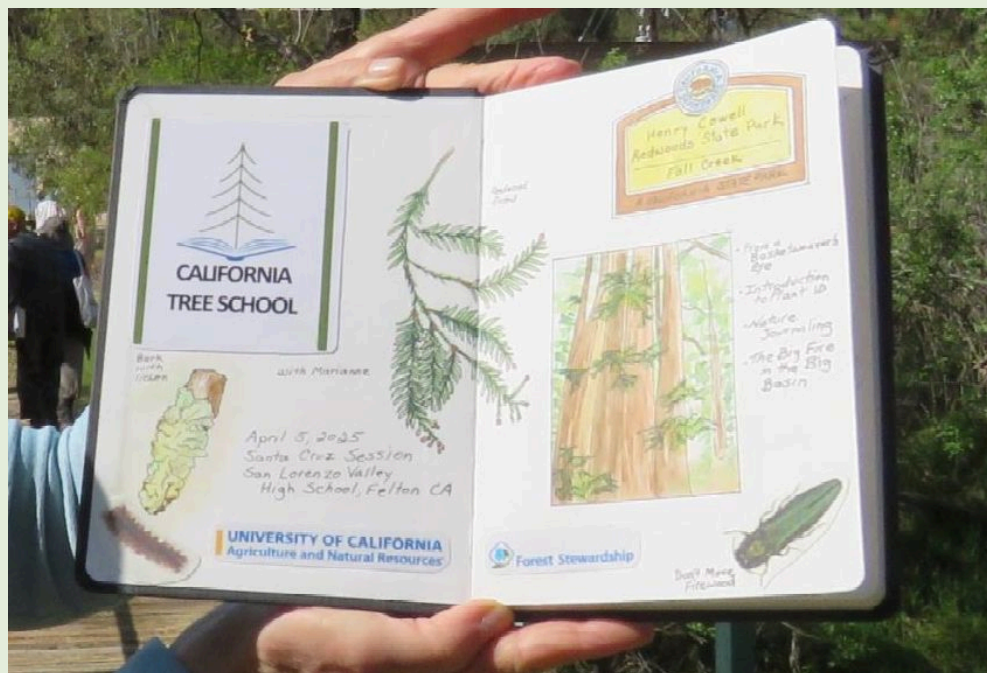 CALIFORNIA
TREE SCHOOL
Bark
with
lichen
with Marianne
April 5, 2025
Santa Cruz Session
San Lorenzo Valley
High School, Felton CA
UNIVERSITY OF CALIFORNIA
Agriculture and Natural Resources
Henry Cowell
Redwoods State Park
Fall Creek
A CALIFORNIA STATE PARK
- From a
Basketweaver's
Eye
- Introduction
to Plant ID
- Nature
Journaling
- The Big Fire
in the Big
Basin
Forest Stewardship
Don't Move
Firewood